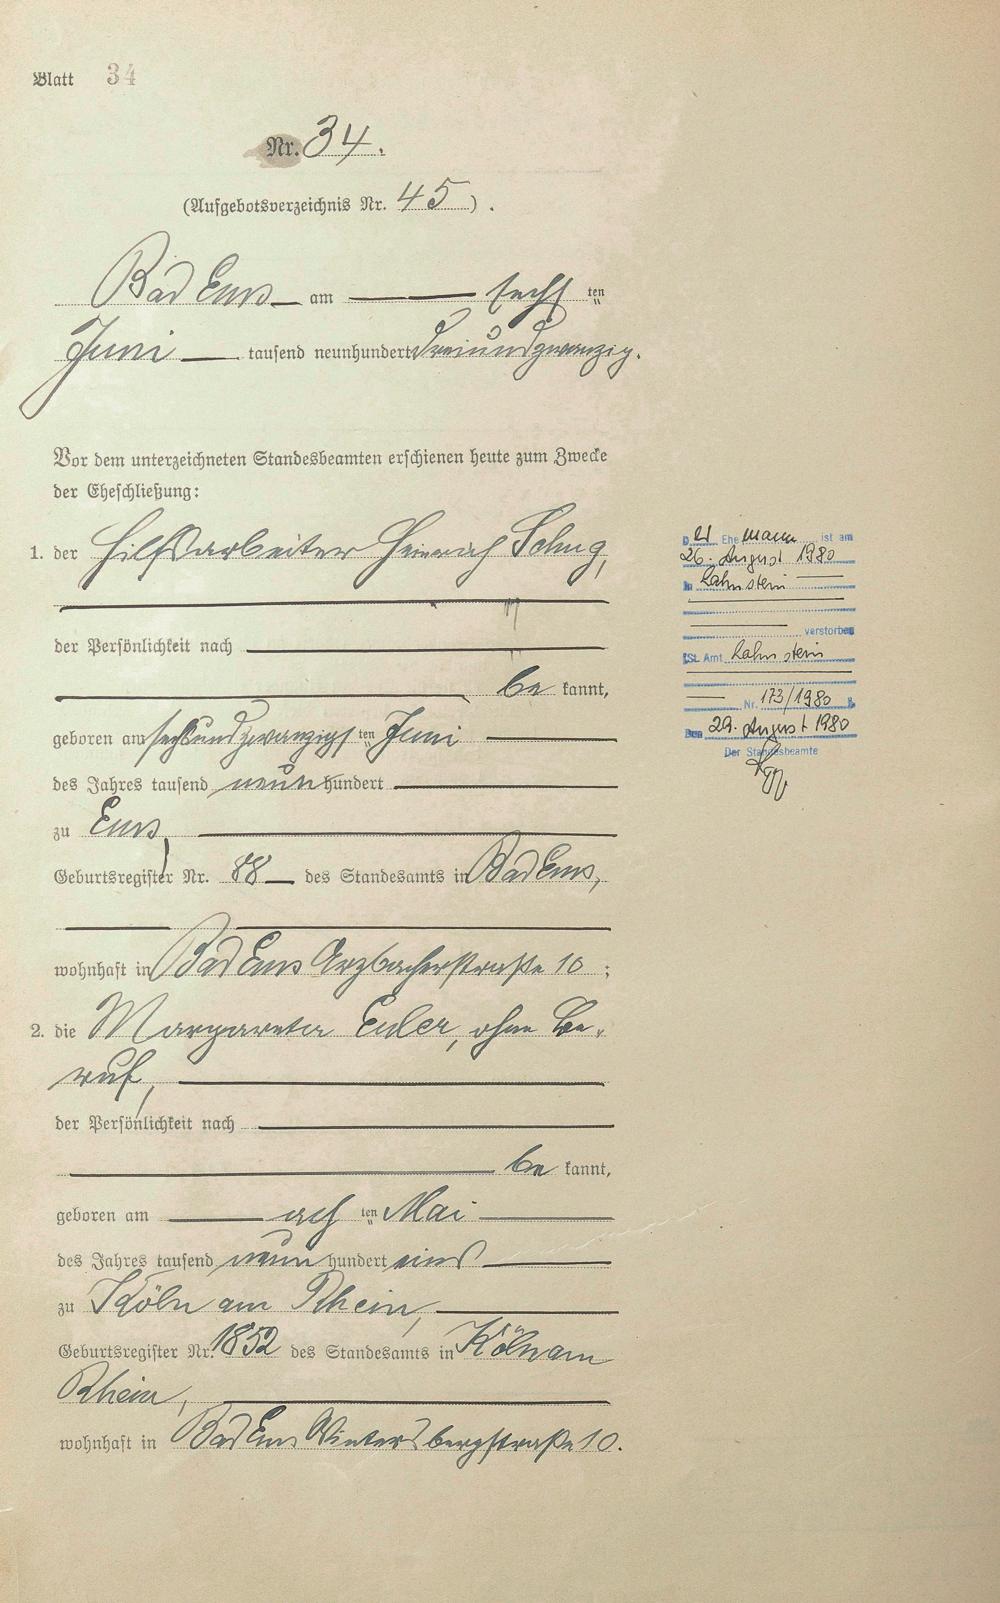 Blatt 34
Nr. 34.
(Aufgebotsverzeichnis Nr. 45).
Bad Ems am sechsten
Juni tausend neunhundert dreiundzwanzig.
Vor dem unterzeichneten Standesbeamten erschienen heute zum Zwecke
der Eheschließung:
1. der Hilfsarbeiter Heinrich Schug,
der Persönlichkeit nach
be kannt,
geboren am sechsundzwanzigsten Juni
des Jahres tausend neunhundert
zu Ems,
Geburtsregister Nr. 88 des Standesamts in Bad Ems,
wohnhaft in Bad Ems Arzbacherstraße 10;
2. die Margareta Euler, ohne Be-
ruf,
der Persönlichkeit nach
be kannt,
geboren am achten Mai
des Jahres tausend neun hundert eins
zu Köln am Rhein,
Geburtsregister Nr. 1852 des Standesamts in Köln am
Rhein,
wohnhaft in Bad Ems Wintersbergstraße 10.
D er Ehe mann ist am
26. August 1980
in Lahnstein
verstorben
(St. Amt Lahnstein
Nr. 173/1980
Den 29. August 1980
Der Standesbeamte